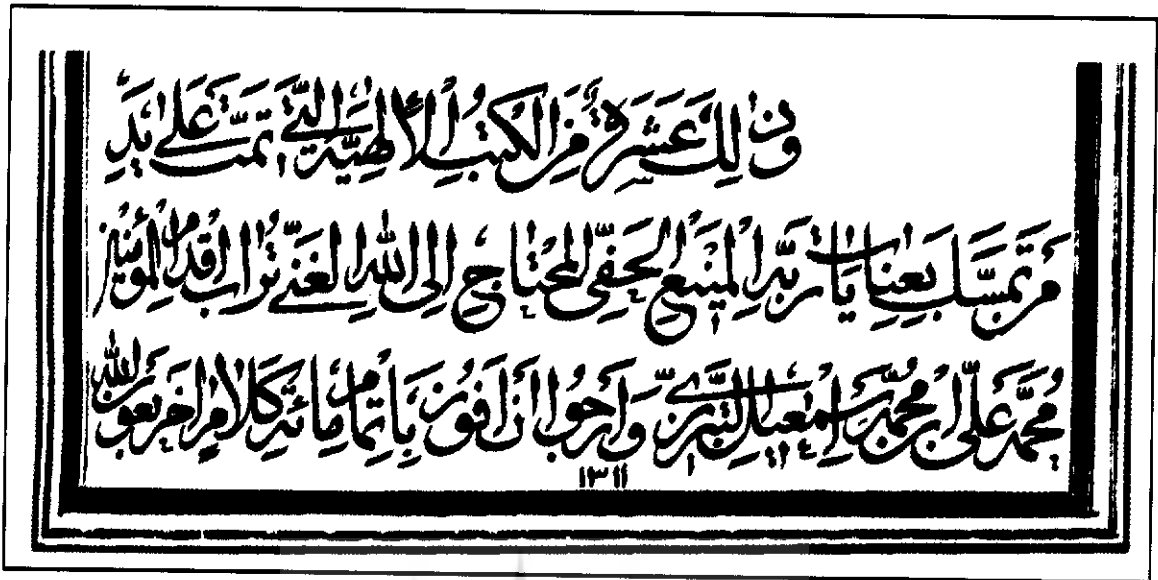 وذلك عشرة من الكتب الألهية التي تمت على يد
من تمسك بعنايات ربه المنيع الحفي المحتاج إلى الله الغني تراب اقدام المؤمنين
محمد علي ابن محمد إسمعيل التبريزي وأرجوا أن افوز بإتمام مائة كلام اخر بعون الله
١٣١١